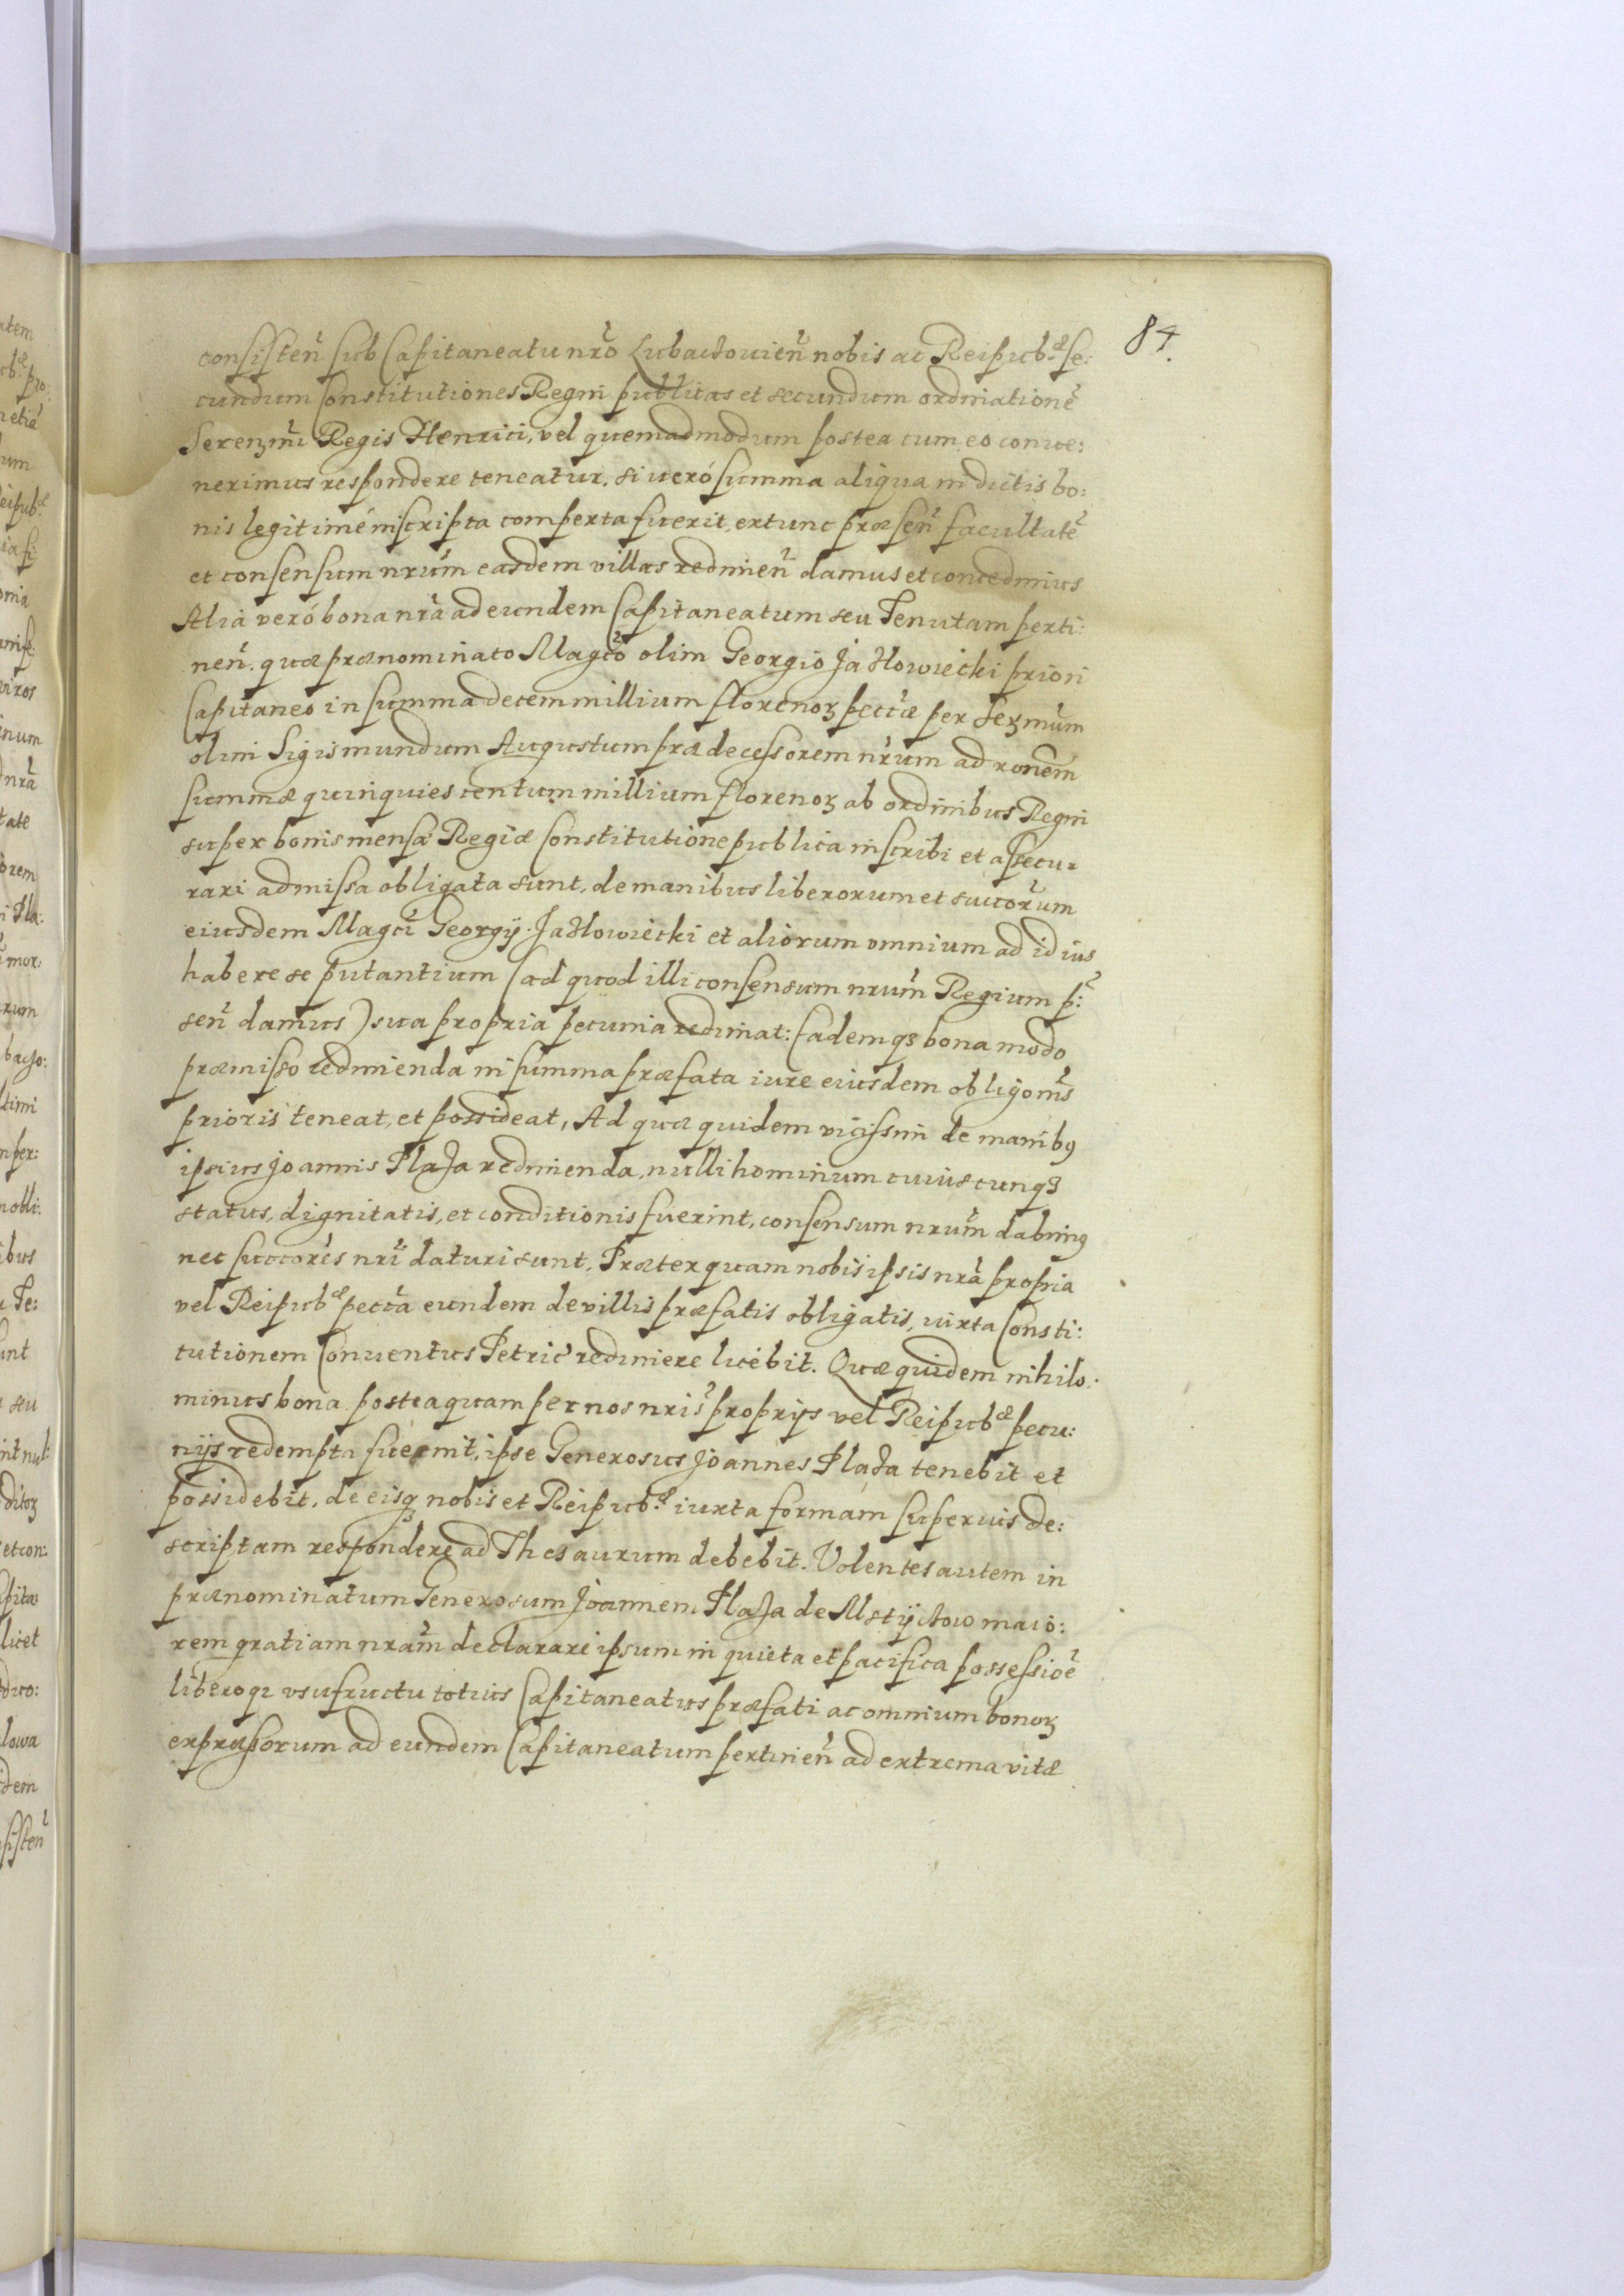 84.
consisten̄ sub Capitaneatu nr̄o Lubaczouien̄ nobis ac Reipub:æ se:
cundum Constitutiones Regni publicas et secundum ordinationē
Serenīmi Regis Henrici, vel quemadmodum postea cum eo conue:
nerimus respondere teneatur. si ueró summa aliqua in dictis bo:
nis legitimé inscripta comperta fuerit, extunc præsen̄ facultatē
et consensum nr̄um easdem villas redimen̄ damus et concedimus
Alia veró bona nr̄a ad eundem Capitaneatum seu Tenutam perti:
nen̄. quæ prænominato Magc̄o olim Georgio Jazlowiecki priori
Capitaneo in summa decem millium florenoꝝ pecc̄æ per Serm̄um
olim Sigismundum Augustum prædecessorem nr̄um ad ronem̄
summæ quinquies centum millium florenoꝝ ab ordinibus Regni
super bonis mensæ Regiæ Constitutione publica inscribi et assecu-
rari admissa obligata sunt, de manibus liberorum et succor̄um
eiusdem Magcī Georgij Jazlowiecki et aliorum omnium ad id ius
habere se putantium (ad quod illi consensum nr̄um Regium p:̄
sen̄ damus) sua propria pecunia redimat: Eademqꝫ bona modo
præmisso redimenda in summa præfata iure eiusdem obligoīs
prioris teneat, et possideat, Ad quæ quidem vicissim de manibꝰ
ipsius Joannis Plaza redimenda, nulli hominum cuiuscunqꝫ
status, dignitatis, et conditionis fuerint, consensum nr̄um dabimꝰ
nec succorēs nr̄i daturi sunt, Præterquam nobis ipsis nr̄a propria
vel Reipubæ pecc̄a eundem de villis præfatis obligatis, iuxta Consti:
tutionem Conuentus Petric̄ redimere licebit. Quæ quidem nihilo:
minus bona posteaquam per nos nr̄is proprijs vel Reipubæ pecu:
nijs redempta fuerint, ipse Generosus Joannes Plaza tenebit et
possidebit, de eisqꝫ nobis et Reipub:æ iuxta formam superius de:
scriptam respondere ad Thesaurum debebit. Volentes autem in
prænominatum Generosum Joannem Plaza de Mstyczow maio:
rem gratiam nr̄am declarare ipsum in quieta et pacifica possessioē
liberoqꝫ vsufructu totius Capitaneatus præfati ac omnium bonoꝝ
expressorum ad eundem Capitaneatum pertinen̄ ad extrema vitæ